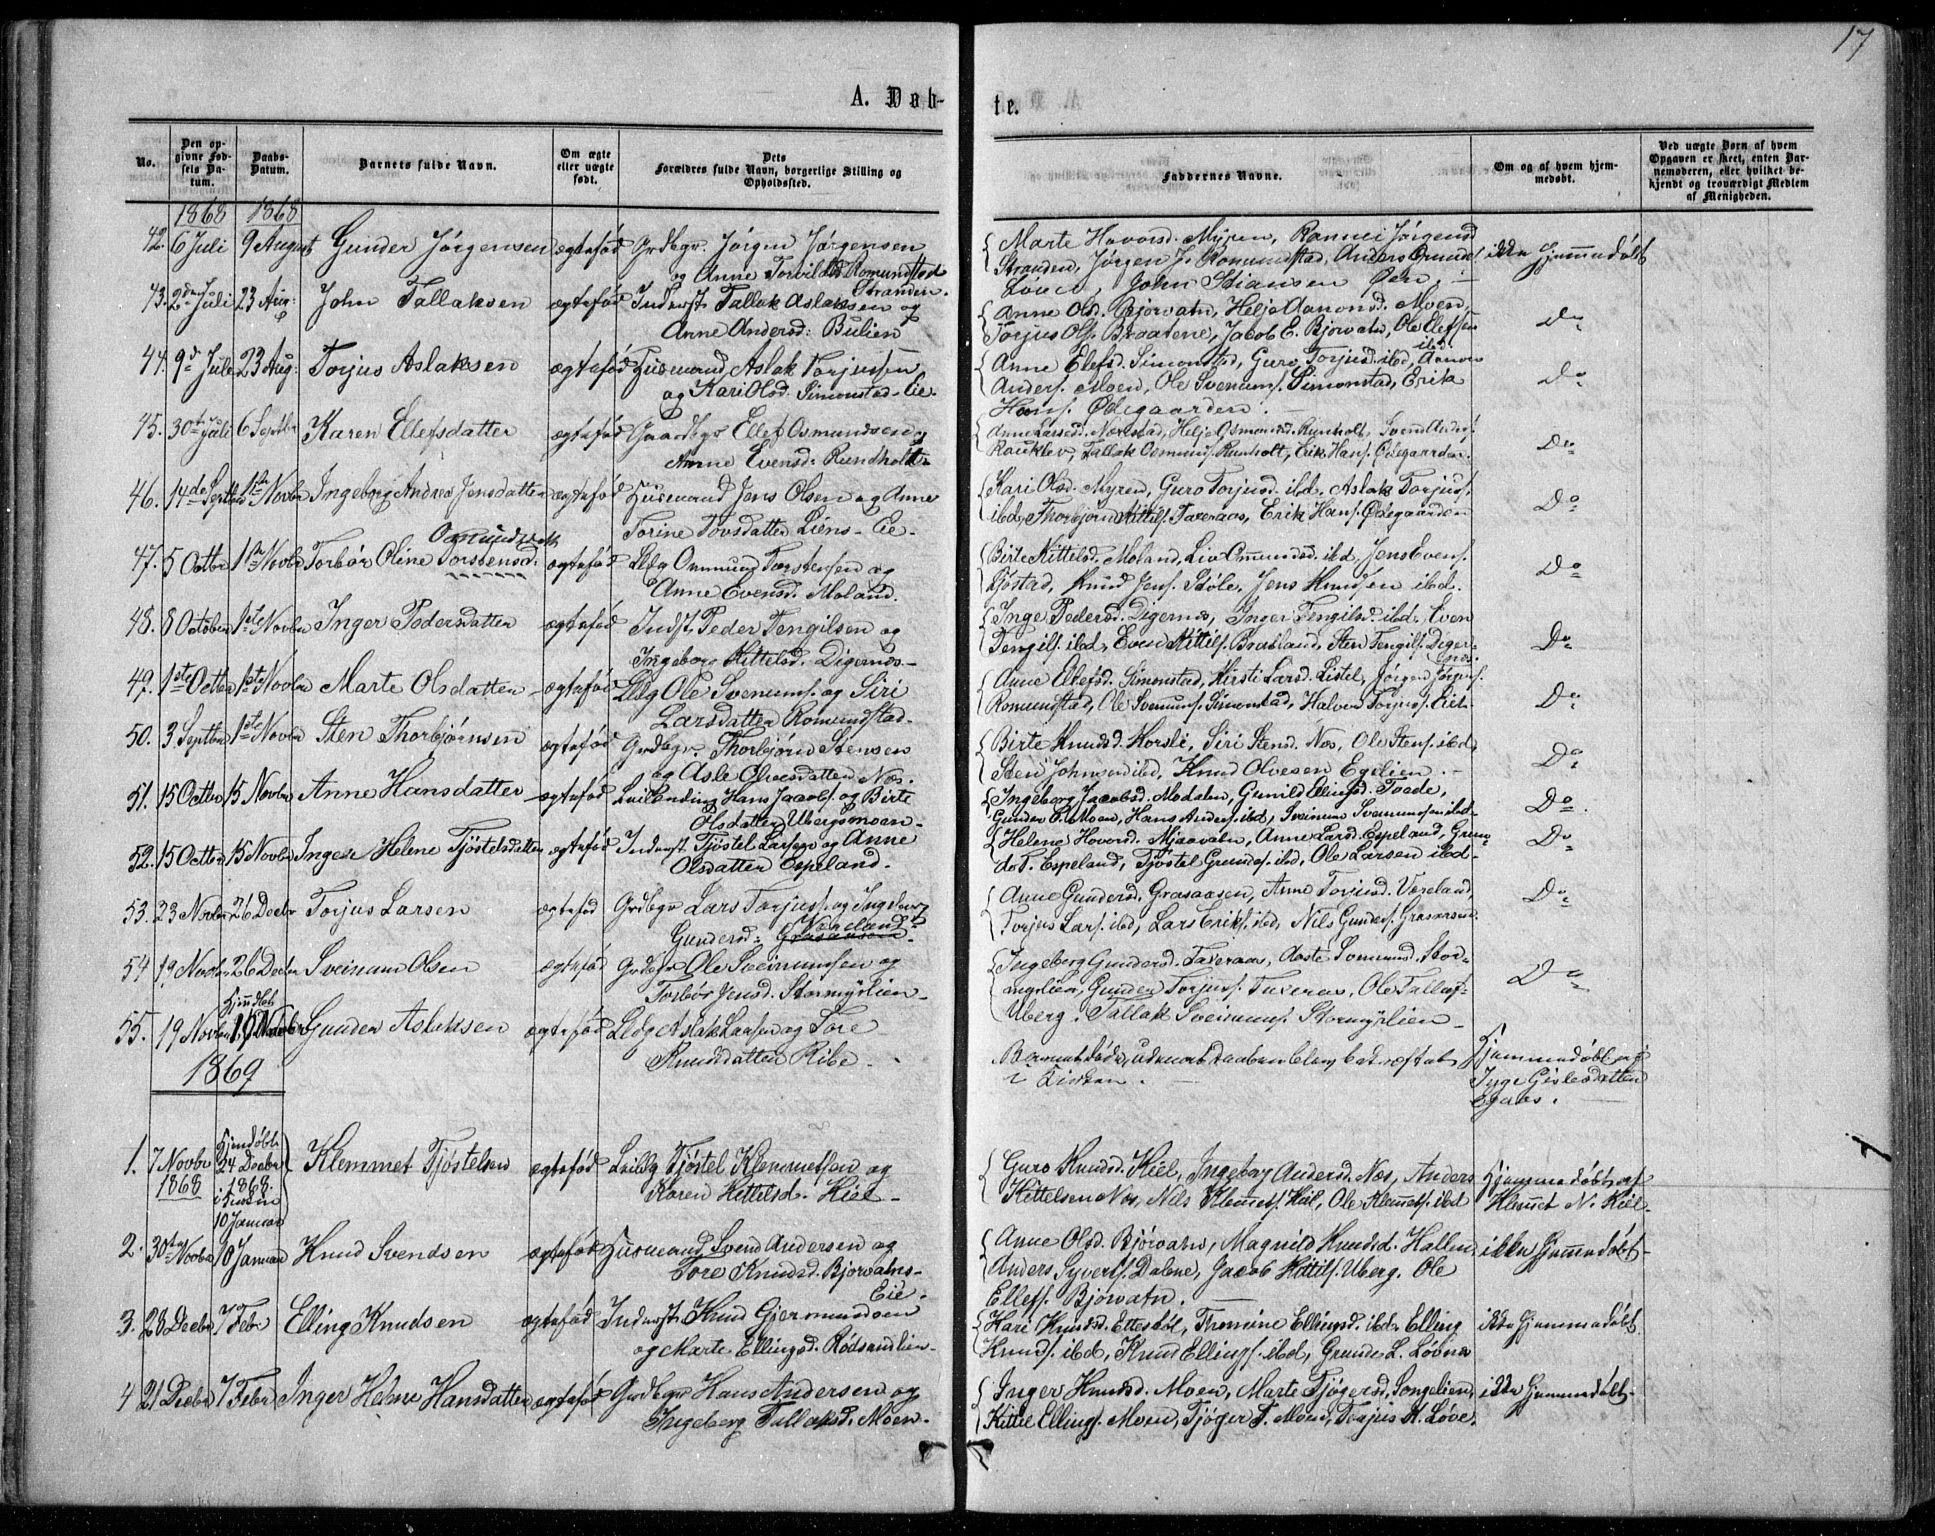 17
A. Døb-
te.
No.
Den op-
givne Fød-
sels Da-
tum.
Daabs-
Datum.
Barnets fulde Navn.
Om ægte
eller uægte
født.
Dets
Forældres fulde Navn, borgerlige Stilling og
Opholdssted.
Faddernes Navne.
Om og af hvem hjem-
medøbt.
Ved uægte Børn af hvem
Opgaven er skeet, enten Bar-
nemoderen, eller hvilket be-
kjendt og troværdigt Medlem
af Menigheden.
1868 1868
42. 6 Juli 9 August Gunder Jørgensen ægtefød Grdbgr. Jørgen Jørgensen
og Anne Torvildsd. Romundstad
Stranden.
Marte Hovorsd. Myren, Rannei Jørgensd
Stranden, Jørgen J. Romundstad, Anders
John Stiansen Øen.
ikke hjemmedøbt
43. 2den Juli 23 Aug: John Tallaksen ægtefød Inderst Tallak Aslaksen og
Anne Andersd: Bulien
Anne Olsd. Bjorvatn, Helje Aamonsd. Moen,
Torjus Ols. Braatene, Jacob E. Bjorvatn, Ole Elefsen
ibd.
Do
44. 9de Juli 23 Aug: Torjus Aslaksen ægtefød Husmand Aslak Torjussen
og Kari Olsd. Simonstad-Eie.
Anne Elefsd. Simonstad, Guro Torjusd. ibd,
Anders. Moen, Ole Svenums. Simonstad, Erik
Hans. Ødegaarden.
Do
45. 30te Juli 6 Septbr Karen Ellefsdatter ægtefød Gaardbgr Ellef Osmundsen og
Anne Evensd: Rundholt
Anne Larsd. Nævestad, Helje Osmondsd. Runholt, Svend Anders.
Rauklev, Tallak Osmuns. Runholt, Erik Hans. Ødegaarden.
Do
46. 14de Septbr 1ste Novbr Ingeborg Andrea Jensdatter ægtefød Husmand Jens Olsen og Anne
Torine Tovsdatter Liens-Eie.
Kari Olsd. Myren, Guro Torjusd. ibd. Aslak Torjus.
ibd, Thorbjørn Kittils. Taxeraas, Erik Hans. Ødegaarden
Do
47. 5 Octbr 1ste Novbr Torbør Oline Torstensd. ægtefød Lldg Ommund Torstensen og
Anne Evensd. Moland.
Birte Kittilsd. Moland, Liv Ommundsd. ibd. Jens Evens.
Knud Jens. Støle, Jens Knudsen ibd.
Do
48. 8 October 1ste Novbr Inger Pedersdatter ægtefød Indst. Peder Tengilsen og
Ingeborg Kittelsd. Digernes-
Inge Pedersd. Digernes, Inger Tengilsd. ibd. Even
Tengils. ibd, Even Kittils. Brasland, Sten Tengils. Diger-
nes.
Do
49. 1ste Octbr 1ste Novbr Marte Olsdatter ægtefød Lldg Ole Svenums. og Siri
Larsdatter Romundstad-
Anne Elefsd. Simonstad, Kirsti Larsd. Listel, Jørgen Jørgens.
Romundstad, Ole Svenums. Simonstad, Halvor Torjus. Eiet.
Do
50. 3 Septbr 1ste Novbr Sten Thorbjørnsen ægtefød Grdbgr Thorbjørn Stensen
og Asle Olvesdatter Næs.
Birte Knudsd. Horsli, Siri Stensd. Næs, Ole Stens. ibd,
Sten Johnsen ibd, Knud Olvesen Egelien.
Do
51. 15 Octbr 15 Novbr Anne Hansdatter ægtefød Leilænding Hans Jacobs. og Birte
Olsdatter Ubergsmoen-
Ingeborg Jacobsd. Modalen, Gunild Ellingsd. Taade,
Gunder P. Moen, Hans Anders. ibd, Sveinum Svenumsen ibd.
Do
52. 15 Octbr 15 Novbr Helene Tjøstelsdatter ægtefød Inderst Tjøstel Larsen og Anne
Olsdatter Espeland.
Helene Hovorsd. Mjaavatn, Anne Larsd. Espeland, Grun-
de T. Espeland, Tjøstel Grundes. ibd, Ole Larsen ibd-
Do
53. 23 Novbr 26 Decbr Torjus Larsen ægtefød Grdbgr Lars Torjus. og Ingeborg
Gundersd: Voreland
Anne Gundersd. Grasaasen, Anne Torjusd. Voreland,
Torjus Lars. ibd, Lars Eriks. ibd, Nils Gunders. Grasaasen.
Do
54 19 Novbr 26 Decbr Sveinum Olsen ægtefød Grdbgr Ole Sveinumsen og
Torbør Jensd. Stormyrlien-
Ingeborg Gundersd. Taxeraas, Aaste Sonmund. Stor-
myrlien, Gunder Torjus. Taxeraas, Ole Tallaks.
Uberg. Tallak Sveinums. Stormyrlien-
Do
55. 19 Novbr Hjmdbt 19 Novbr Gunder Aslaksen ægtefød Lldg Aslak Larsen og Tore
Knudsdatter Ribe.
Barnet døde, uden at daaben blev bekræftet
i Kirken.
Hjemmedøbt af
Inge Gislesdatter
Egaas.
1869
1. 7 Novbr 1868 Hjemdøbt 24 Decbr 1868. i Kirken 10 Januar Klemmet Tjøstelsen ægtefød Leildg Tjøstel Klemmetsen og
Karen Kittelsd. Kiel-
Guro Knudsd. Kiel, Ingeborg Andersd. Næs, Anders
Kittelsen Næs, Nils Klemets. Kiil, Ole Klemets. ibd
Hjemmedøbt af
Klemmet N. Kiil-
2. 30te Novbr 10 Januar Knud Svendsen ægtefød Husmand Svend Andersen og
Tore Knudsd. Bjorvatns-
Eie.
Anne Olsd. Bjørvatn, Magnild Knudsd. Hallen,
Anders Syverts. Dalene, Jacob Kittils. Uberg. Ole
Ellefs. Bjørvatn.
ikke hjemmedøbt-
3. 28 Decbr 7 Febr Elling Knudsen ægtefød Inderst Knud Gjermundsen
og Marte Ellingsd. Rødsandlien-
Kari Knudsd. Ettestøl, Thomine Ellingsd. ibd. Elling
Knuds. ibd, Knud Ellings. ibd, Grunde L. Løvne
ikke hjemmedøbt.
4 21 Decbr 7 Febr Inger Helene Hansdatter ægtefød Grdbgr Hans Andersen og
Ingeborg Tallaksd. Moen.
Inger Knudsd. Moen, Marte Tjøgersd. Songelien,
Kittil Ellings. Moen, Tjøger T. Moen, Torjus K. Løve.
ikke hjemmedøbt-